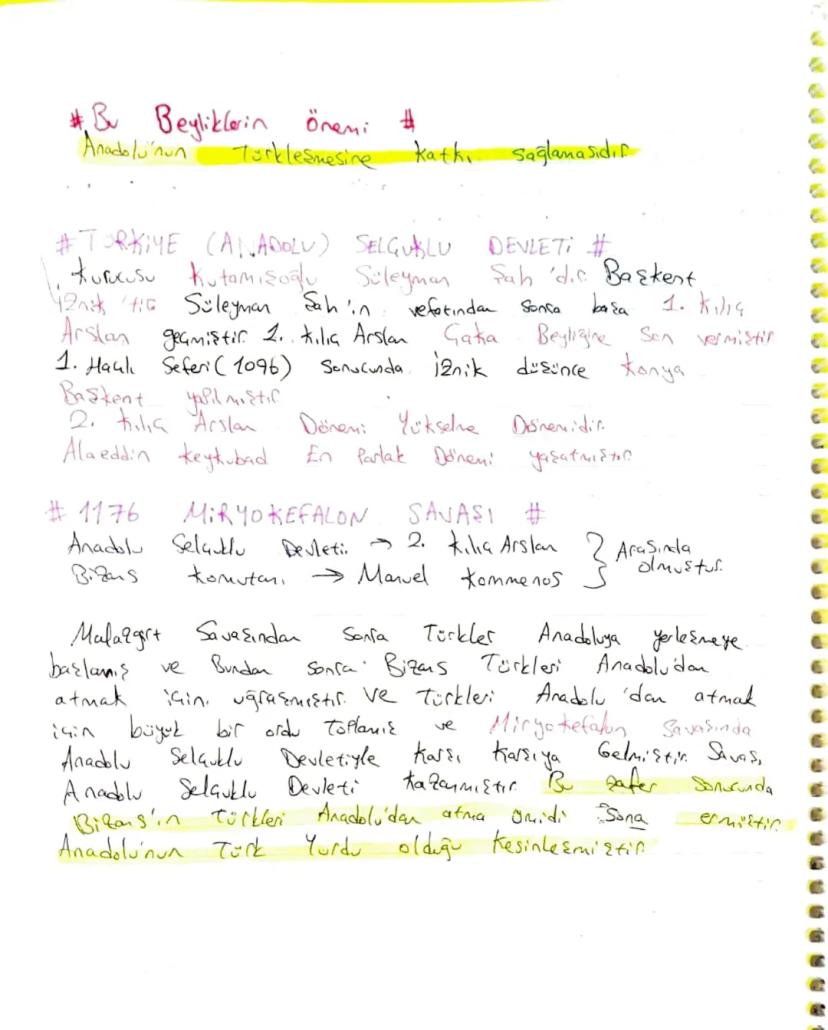 # Bu Beyliklerin Önemi #
Anadolu'nun Türkleşmesine katkı sağlamasıdır.
# TÜRKİYE (ANADOLU) SELÇUKLU DEVLETİ #
Kurucusu Kutalmışoğlu Süleyman Şah'dır. Başkent
İznik'tir Süleyman Şah'ın vefatından sonra başa 1. Kılıç
Arslan geçmiştir. 1. Kılıç Arslan Çaka Beyliğine Son vermiştir
1. Haçlı Seferi (1096) Sonucunda İznik düşünce Konya
Başkent yapılmıştır.
2. Kılıç Arslan Dönemi Yükselme Dönemidir.
Alaeddin Keykubad En Parlak Dönemi yaşatmıştır.
# 1176 MİRYOKEFALON SAVAŞI #
Anadolu Selçuklu Devleti → 2. Kılıç Arslan
Bizans komutanı → Manuel Kommenos
} Arasında
olmuştur.
Malazgirt Savaşından sonra Türkler Anadoluya yerleşmeye
başlamış ve Bundan sonra Bizans Türkleri Anadolu'dan
atmak için uğraşmıştır. Ve Türkleri Anadolu'dan atmak
için büyük bir ordu toplamış ve Miryokefalon Savaşında
Anadolu Selçuklu Devletiyle Karşı Karşıya Gelmiştir. Savaşı,
Anadolu Selçuklu Devleti kazanmıştır. Bu zafer sonucunda
Bizans'ın Türkleri Anadolu'dan atma ümidi Sona ermiştir.
Anadolu'nun Türk Yurdu olduğu Kesinleşmiştir.